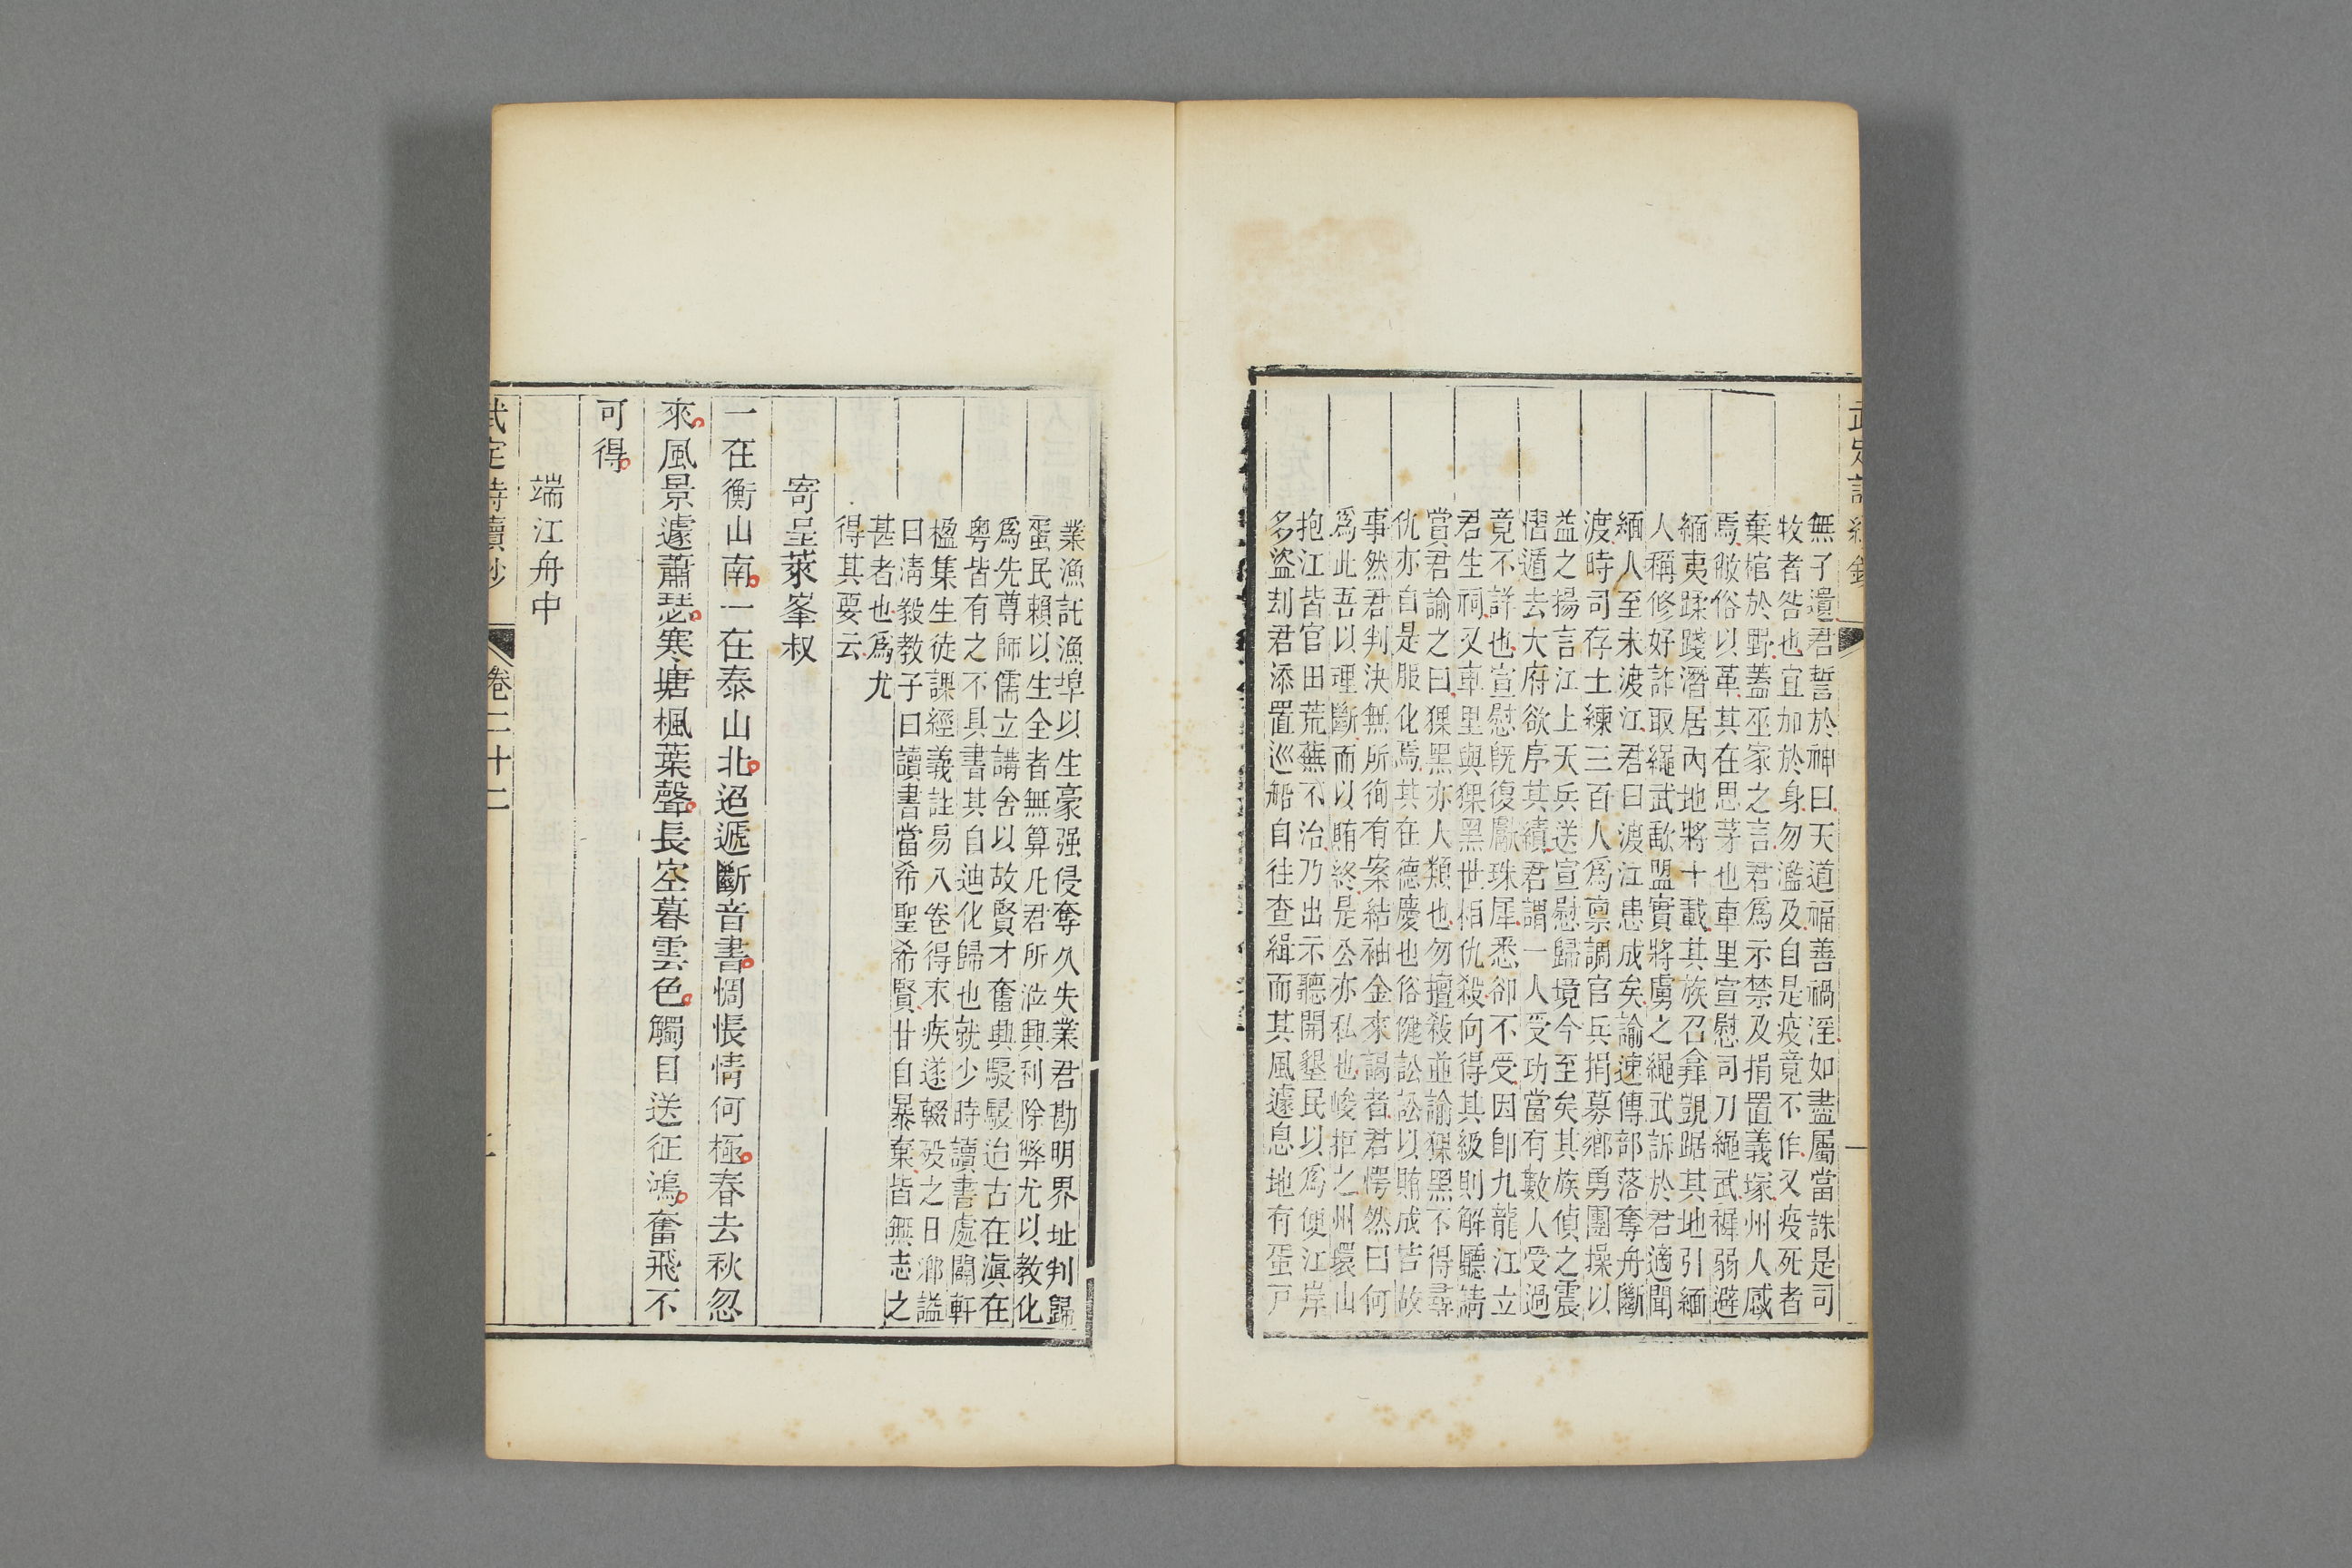 無子遺君誓於神曰天道福善禍淫如盡屬當誅是司
牧者咎也宜加於身勿濫及自是疫竟不作又疫死者
棄棺於野蓋巫家之言君爲示禁及捐置義塚州人感
焉敝俗以革其在思茅也車里宣慰司刀繩武穉弱避
緬夷蹂踐潛居內地將十載其族召彝覬踞其地引緬
人稱修好詐取繩武歃盟實將虜之繩武訴於君適聞
緬人至未渡江君曰渡江患成矣諭速傳部落奪舟斷
渡時司存土練三百人爲禀調官兵捐募鄉勇團操以
益之揚言江上天兵送宣慰歸境今至矣其族偵之震
慴遁去大府欲序其績君謂一人受功當有數人受過
竟不許也宣慰旣復獻珠犀悉卻不受因卽九龍江立
君生祠又車里與猓黑世相仇殺向得其級則解聽請
賞君諭之曰猓黑亦人類也勿擅殺並諭猓黑不得尋
仇亦自是服化焉其在德慶也俗健訟訟以賄成吿故
事然君判決無所徇有案結袖金來謁者君愕然曰何
爲此吾以理斷而以賄終是公亦私也峻拒之州環山
抱江皆官田荒蕪不治乃出示聽開墾民以爲便江岸
多盜刦君添置巡船自往查緝而其風遽息地有蛋戶
業漁託漁埠以生豪强侵奪久失業君勘明界址判歸
蛋民賴以生全者無算凡君所涖興利除弊尤以教化
爲先尊師儒立講舍以故賢才奮興駸駸迨古在滇在
粤皆有之不具書其自迪化歸也就少時讀書處闢軒
楹集生徒課經義註易八卷得末疾遂輟歿之日鄉謚
曰淸毅教子曰讀書當希聖希賢甘自暴棄皆無志之
甚者也爲尤
得其要云
寄呈萊峯叔
一在衡山南一在泰山北迢遞斷音書惆悵情何極春去秋忽
來風景遽蕭瑟寒塘楓葉聲長空暮雲色觸目送征鴻奮飛不
可得
端江舟中
武定詩續鈔 卷二十二